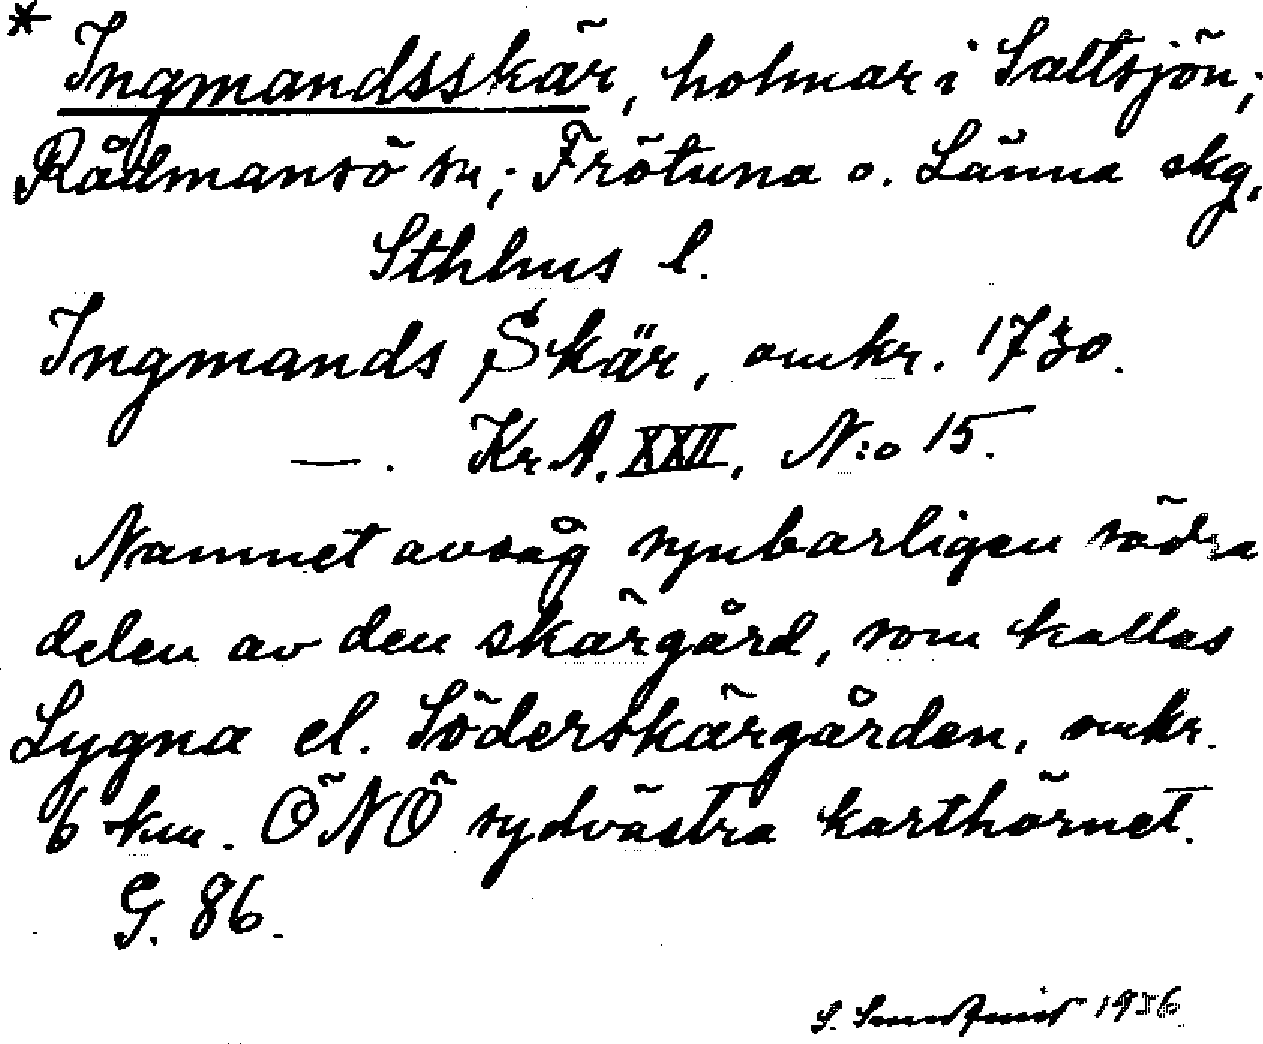 * Ingmandsskär, holmar i Saltsjön;
Rådmansö sn; Frötuna o. Länna skg,
Sthlms l.
Ingmands Skär, omkr. 1730.
—. Kr A. XXII, N:o 15.
Namnet avsåg synbarligen södra
delen av den skärgård, som kallas
Lygna el. Söderskärgården, omkr.
6 km. ÖNÖ sydvästra karthörnet.
G. 86.
S. Sundqvist 1956